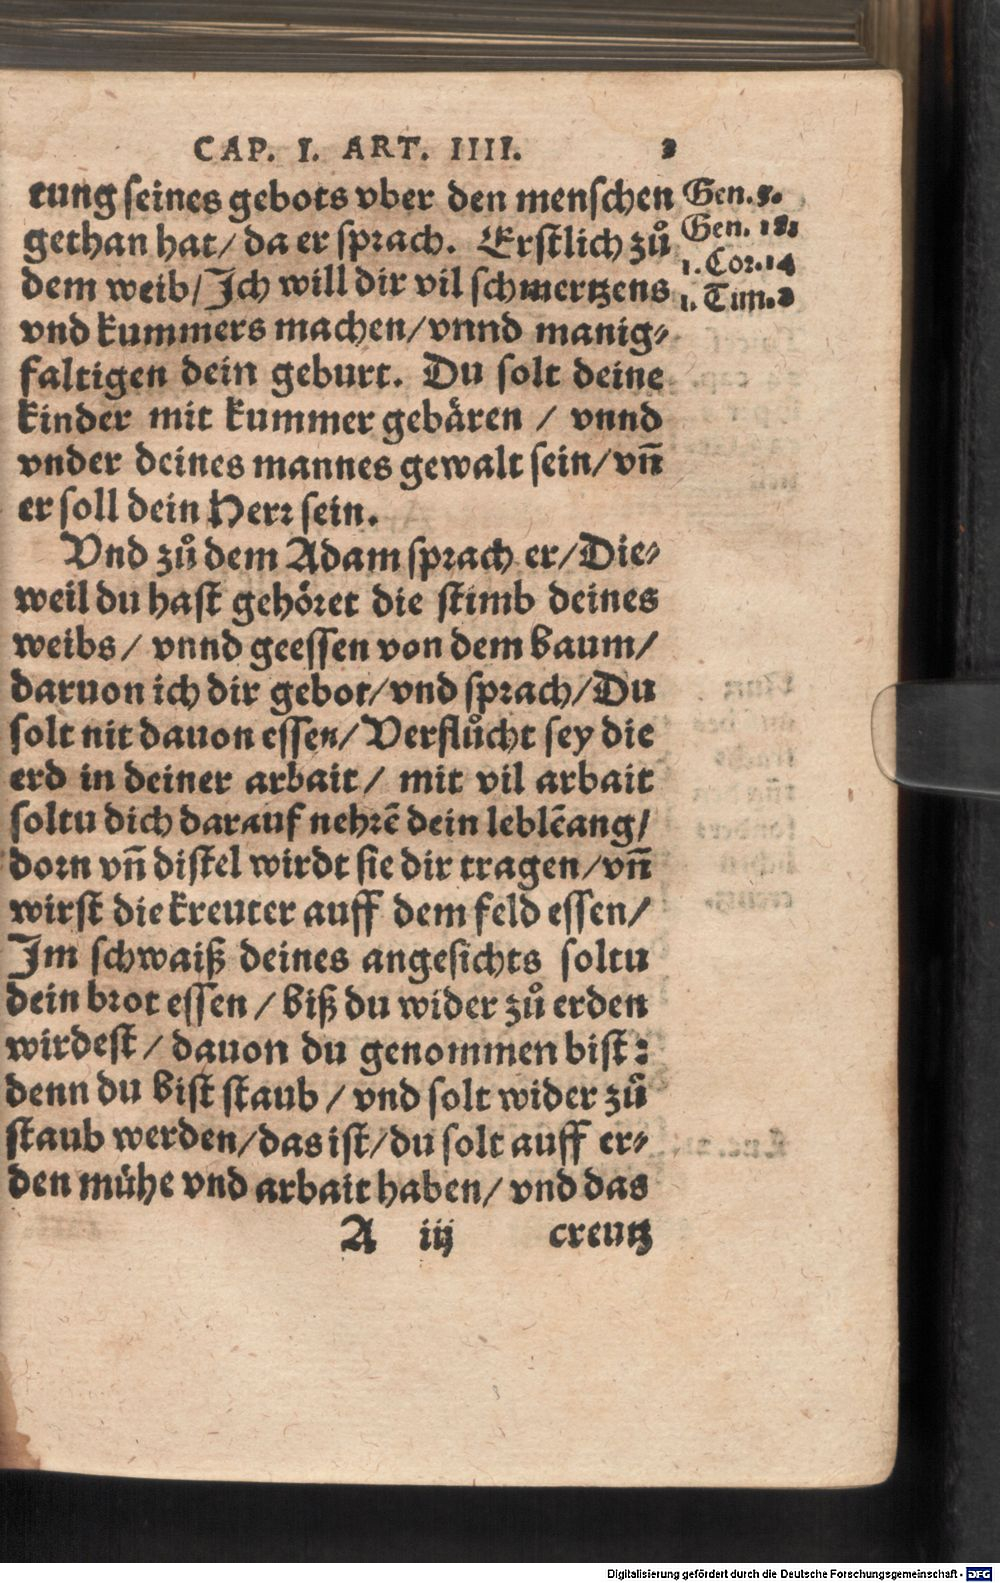 CAP. I. ART. IIII. 3
tung seines gebots vber den menschen
gethan hat/ da er sprach. Erstlich zů
dem weib/ Ich will dir vil schmertzens
vnd kummers machen/ vnnd manig-
faltigen dein geburt. Du solt deine
kinder mit kummer gebären / vnnd
vnder deines mannes gewalt sein/ vñ
er soll dein Herr sein.
Gen. 3.
Gen. 18.
1. Cor. 14
1. Tim. 2
Vnd zů dem Adam sprach er/ Die-
weil du hast gehöret die stimb deines
weibs/ vnnd geessen von dem baum/
daruon ich dir gebot/ vnd sprach/ Du
solt nit dauon essen/ Verflůcht sey die
erd in deiner arbait/ mit vil arbait
soltu dich darauf nehrē dein leblēang/
dorn vñ distel wirdt sie dir tragen/ vñ
wirst die kreuter auff dem feld essen/
Im schwaiß deines angesichts soltu
dein brot essen / biß du wider zů erden
wirdest/ dauon du genommen bist:
denn du bist staub / vnd solt wider zů
staub werden/ das ist/ du solt auff er-
den mühe vnd arbait haben/ vnd das
A iij creutz
Digitalisierung gefördert durch die Deutsche Forschungsgemeinschaft - DFG